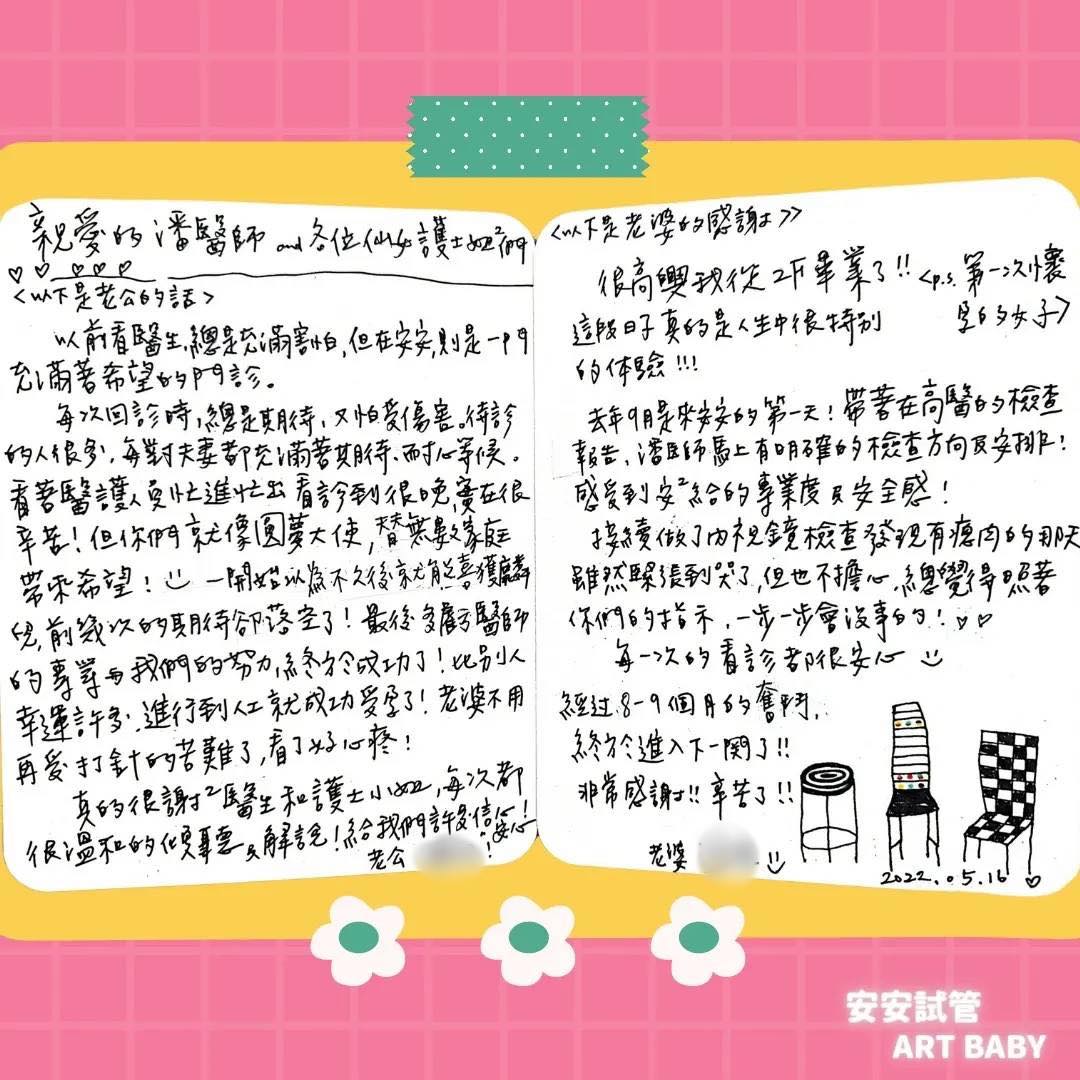 親愛的潘醫師 and 各位仙女護士姐²們
<以下是老公的話>
以前看醫生,總是充滿害怕,但在安安,則是一門
充滿著希望的門診。
每次回診時,總是期待,又怕受傷害。待診
的人很多,每對夫妻都充滿著期待、耐心等候。
看著醫護人員忙進忙出看診到很晚,實在很
辛苦!但你們就像圓夢大使,替無數家庭
帶來希望! 一開始以為不久後就能喜獲麟
兒,前幾次的期待卻落空了! 最後多虧醫師
的專業與我們的努力,終於成功了! 比別人
幸運許多,進行到人工就成功受孕了! 老婆不用
再受打針的苦難了,看了好心疼!
真的很謝²醫生和護士小姐,每次都
很溫和的傾聽及解說!給我們許多信心!
安心!
老公
<以下是老婆的感謝>>
很高興我從2F畢業了!! <p.s.第一次懷
孕的女子>
這段日子真的是人生中很特別
的体驗!!!
去年9月是來安安的第一天! 帶著在高醫的檢查
報告,潘醫師馬上有明確的檢查方向及安排!
感受到安²給的專業度及安全感!
接續做了內視鏡檢查發現有瘜肉的那天
雖然緊張到哭了,但也不擔心,總覺得照著
你們的指示,一步一步會沒事的!
每一次的看診都很安心
經過8-9個月的奮鬥,
終於進入下一関了!!
非常感謝!! 辛苦了!!
老婆
2022.05.16
安安試管
ART BABY